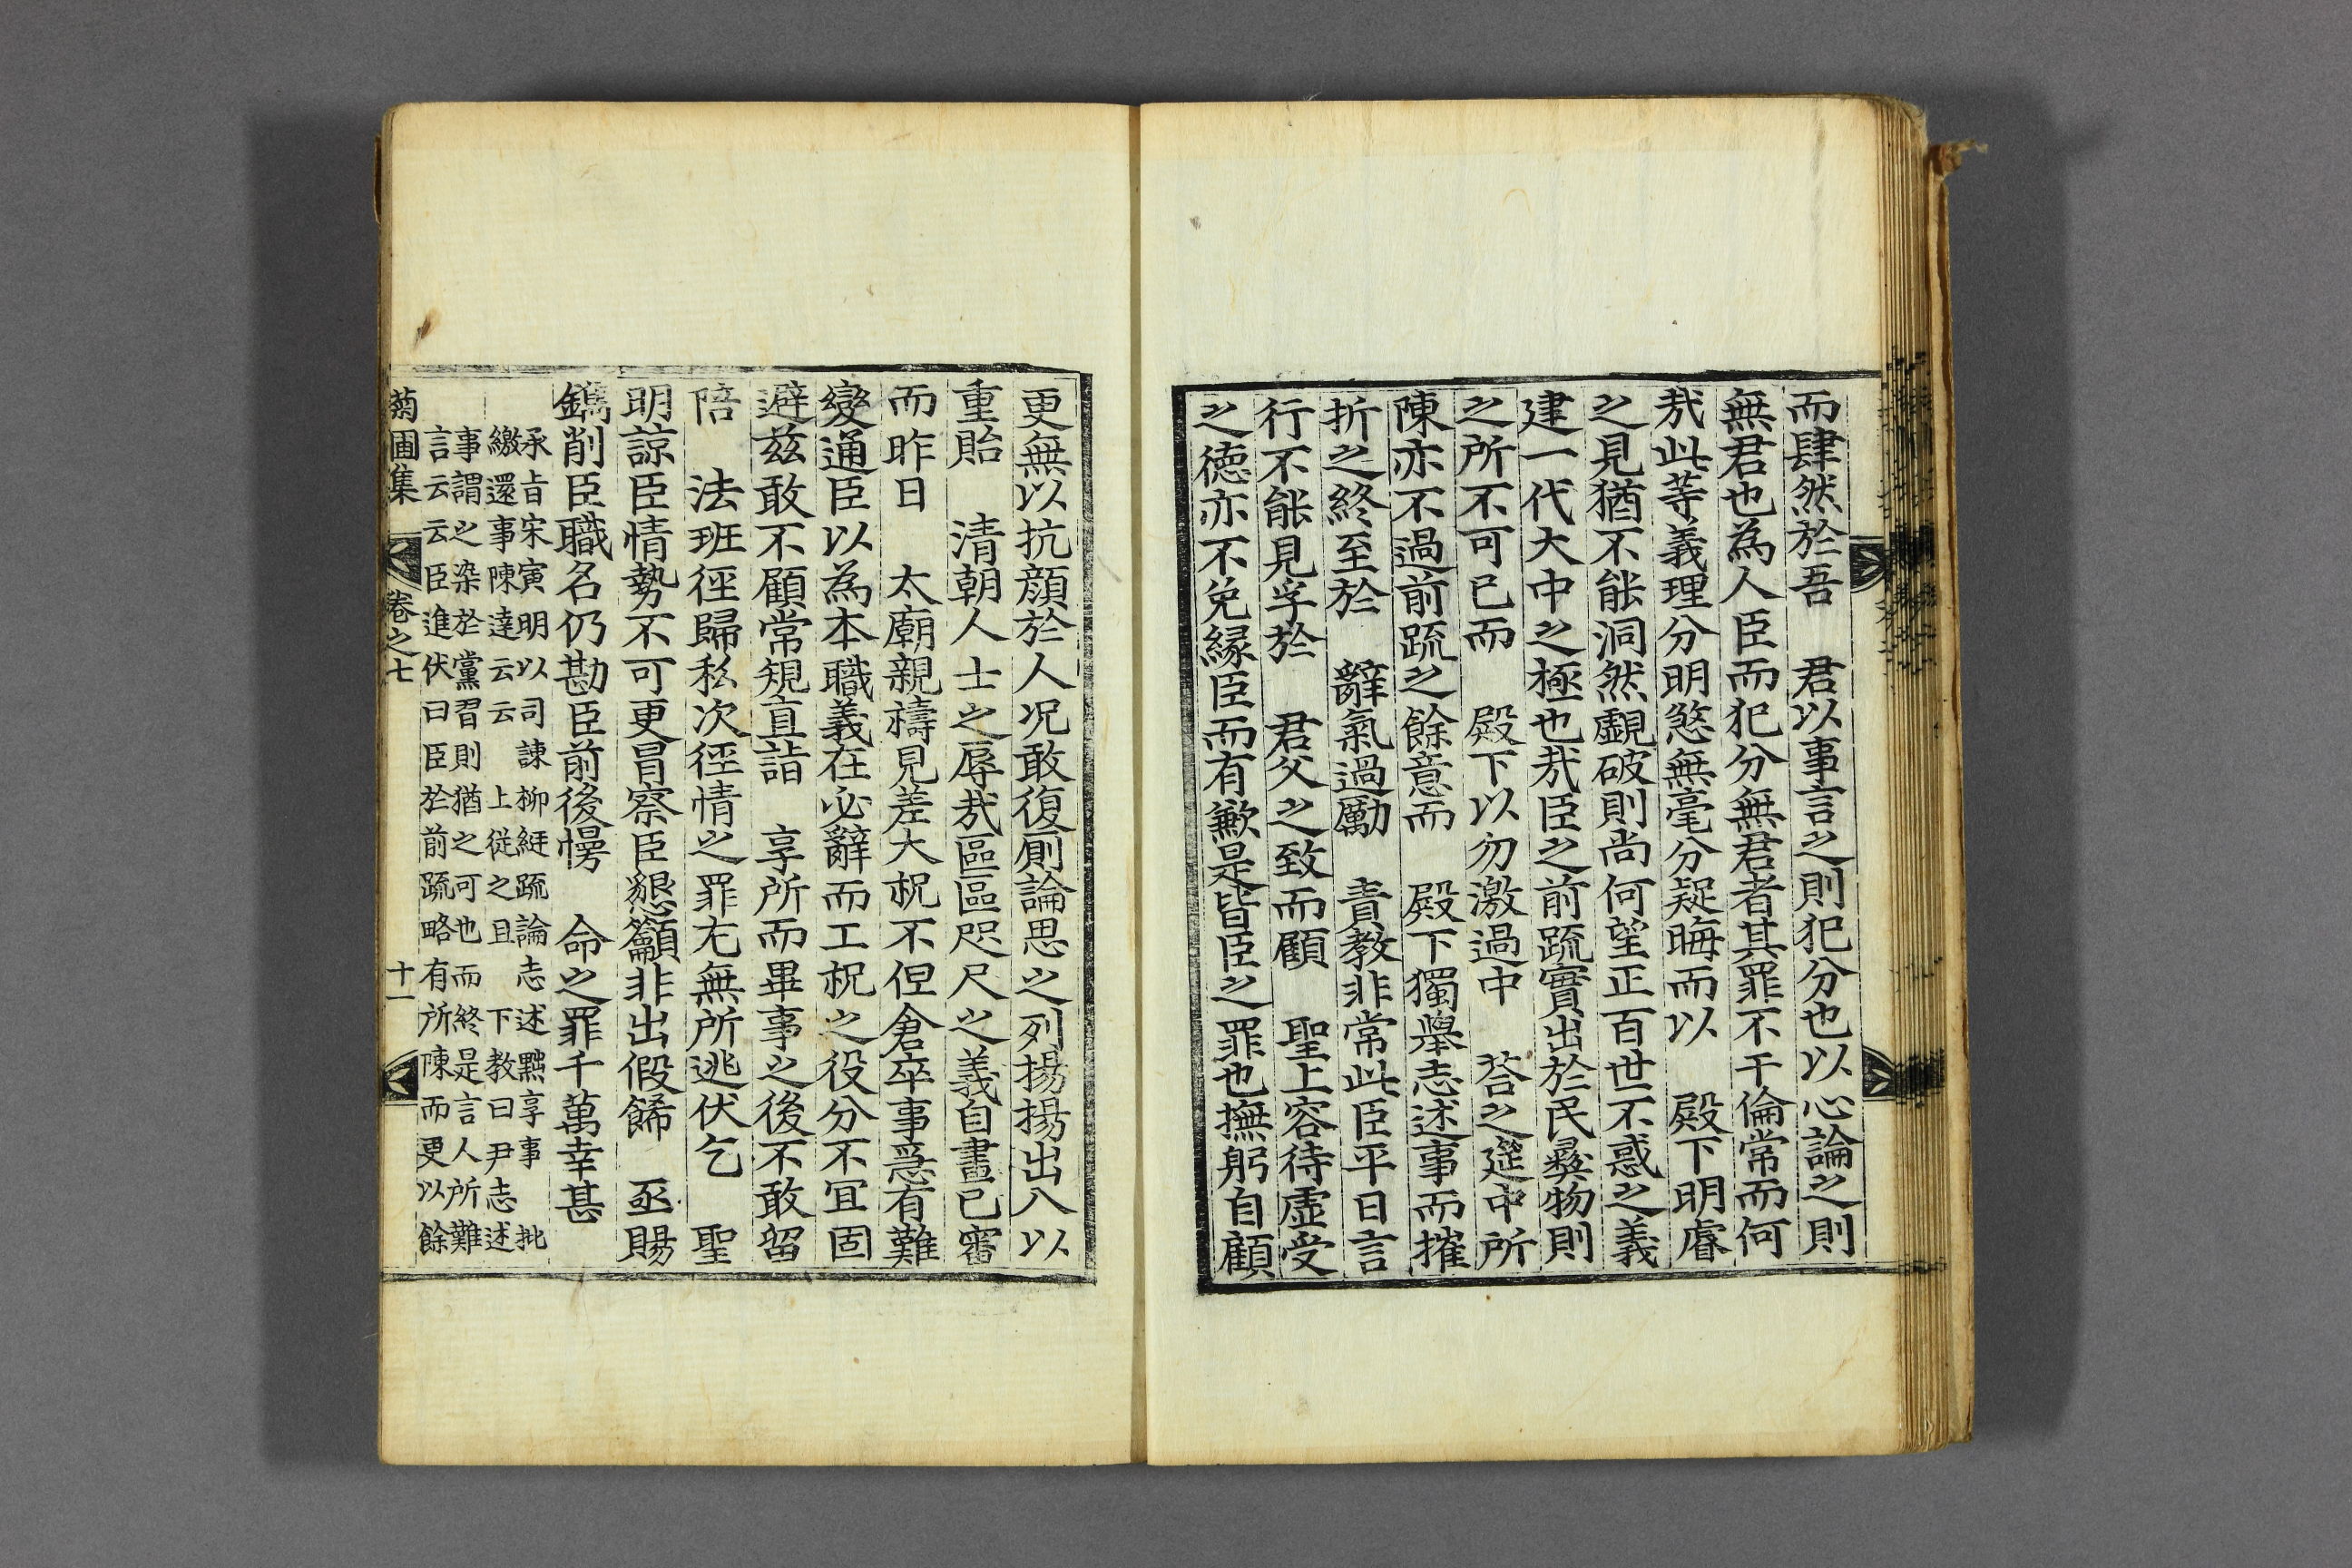 而肆然於吾　君以事言之則犯分也以心論之則
無君也為人臣而犯分無君者其罪不干倫常而何
㢤此等義理分明慾無毫分疑晦而以　殿下明睿
之見猶不能洞然覷破則尚何望正百世不惑之義
建一代大中之極也㢤臣之前疏實出於民彛物則
之所不可已而　殿下以勿激過中　荅之筵中所
陳亦不過前疏之餘意而　殿下獨擧志述事而摧
折之終至於　辭氣過勵　責教非常此臣平日言
行不能見孚於　君父之致而顧　聖上容待虛受
之徳亦不免緣臣而有歉是皆臣之罪也撫躬自顧
更無以抗顔於人况敢復厠論思之列揚揚出入以
重貽　清朝人士之辱㢤區區咫尺之義自畫已審
而昨日　太廟親禱見差大祝不但倉卒事急有難
變通臣以為本職義在必辭而工祝之役分不宜固
避茲敢不顧常規直詣　享所而畢事之後不敢留
陪　法班徑歸私次徑情之罪尤無所逃伏乞　聖
明諒臣情勢不可更冒察臣懇籲非出假餙　亟賜
鐫削臣職名仍勘臣前後慢　命之罪千萬幸甚
承旨宋寅明以司諫柳綎疏論志述黜享事　批
繳還事陳達云云　上從之且　下教曰尹志述
事謂之染於黨習則猶之可也而終是言人所難
言云云臣進伏曰臣於前疏略有所陳而更以餘
菊圃集　卷之七　十一